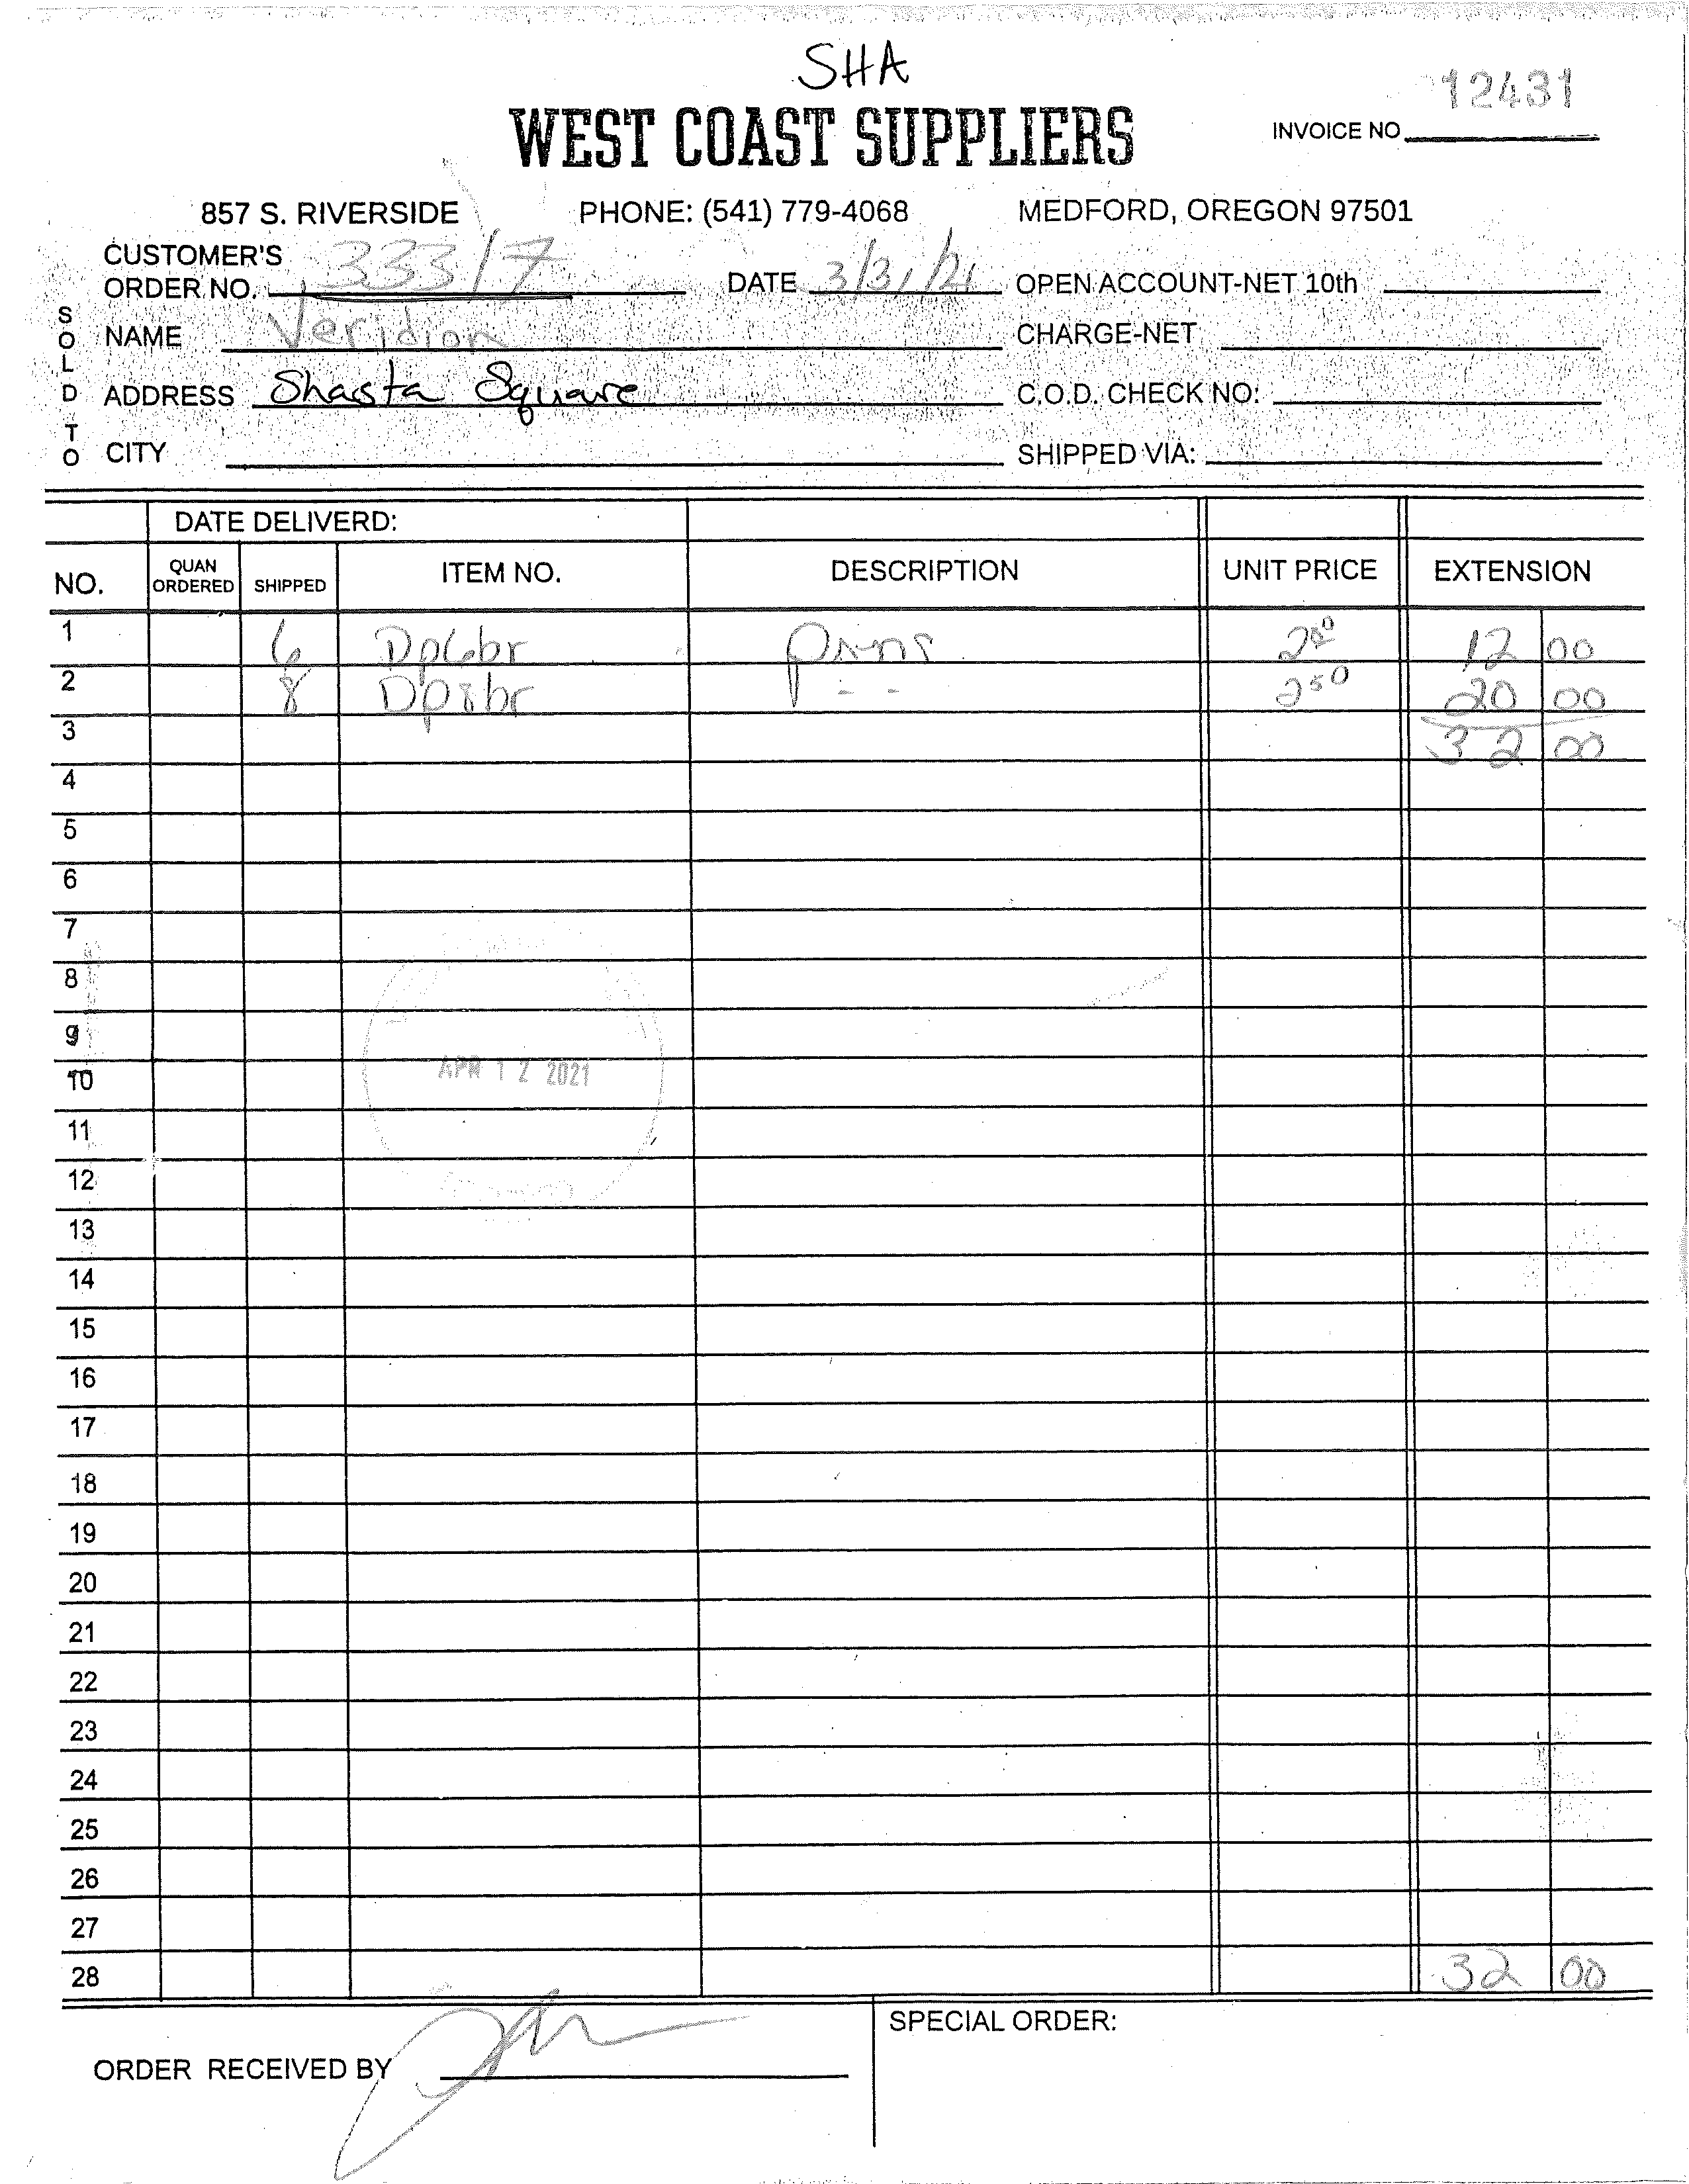 SHA
12431
WEST COAST SUPPLIERS
INVOICE NO.
857 S. RIVERSIDE PHONE: (541) 779-4068 MEDFORD, OREGON 97501
CUSTOMER'S
ORDER NO. 33317 DATE 3/31/21 OPEN ACCOUNT-NET 10th
SOLD TO
NAME Veridian CHARGE-NET
ADDRESS Shasta Square C.O.D. CHECK NO:
CITY SHIPPED VIA:
DATE DELIVERD:
NO. QUAN ORDERED SHIPPED ITEM NO. DESCRIPTION UNIT PRICE EXTENSION
1 6 Dp6br pans 2 00 12 00
2 8 Dp8br - - 2 50 20 00
3 32 00
4
5
6
7
8
9
10 APR 12 2021
11
12
13
14
15
16
17
18
19
20
21
22
23
24
25
26
27
28 32 00
SPECIAL ORDER:
ORDER RECEIVED BY